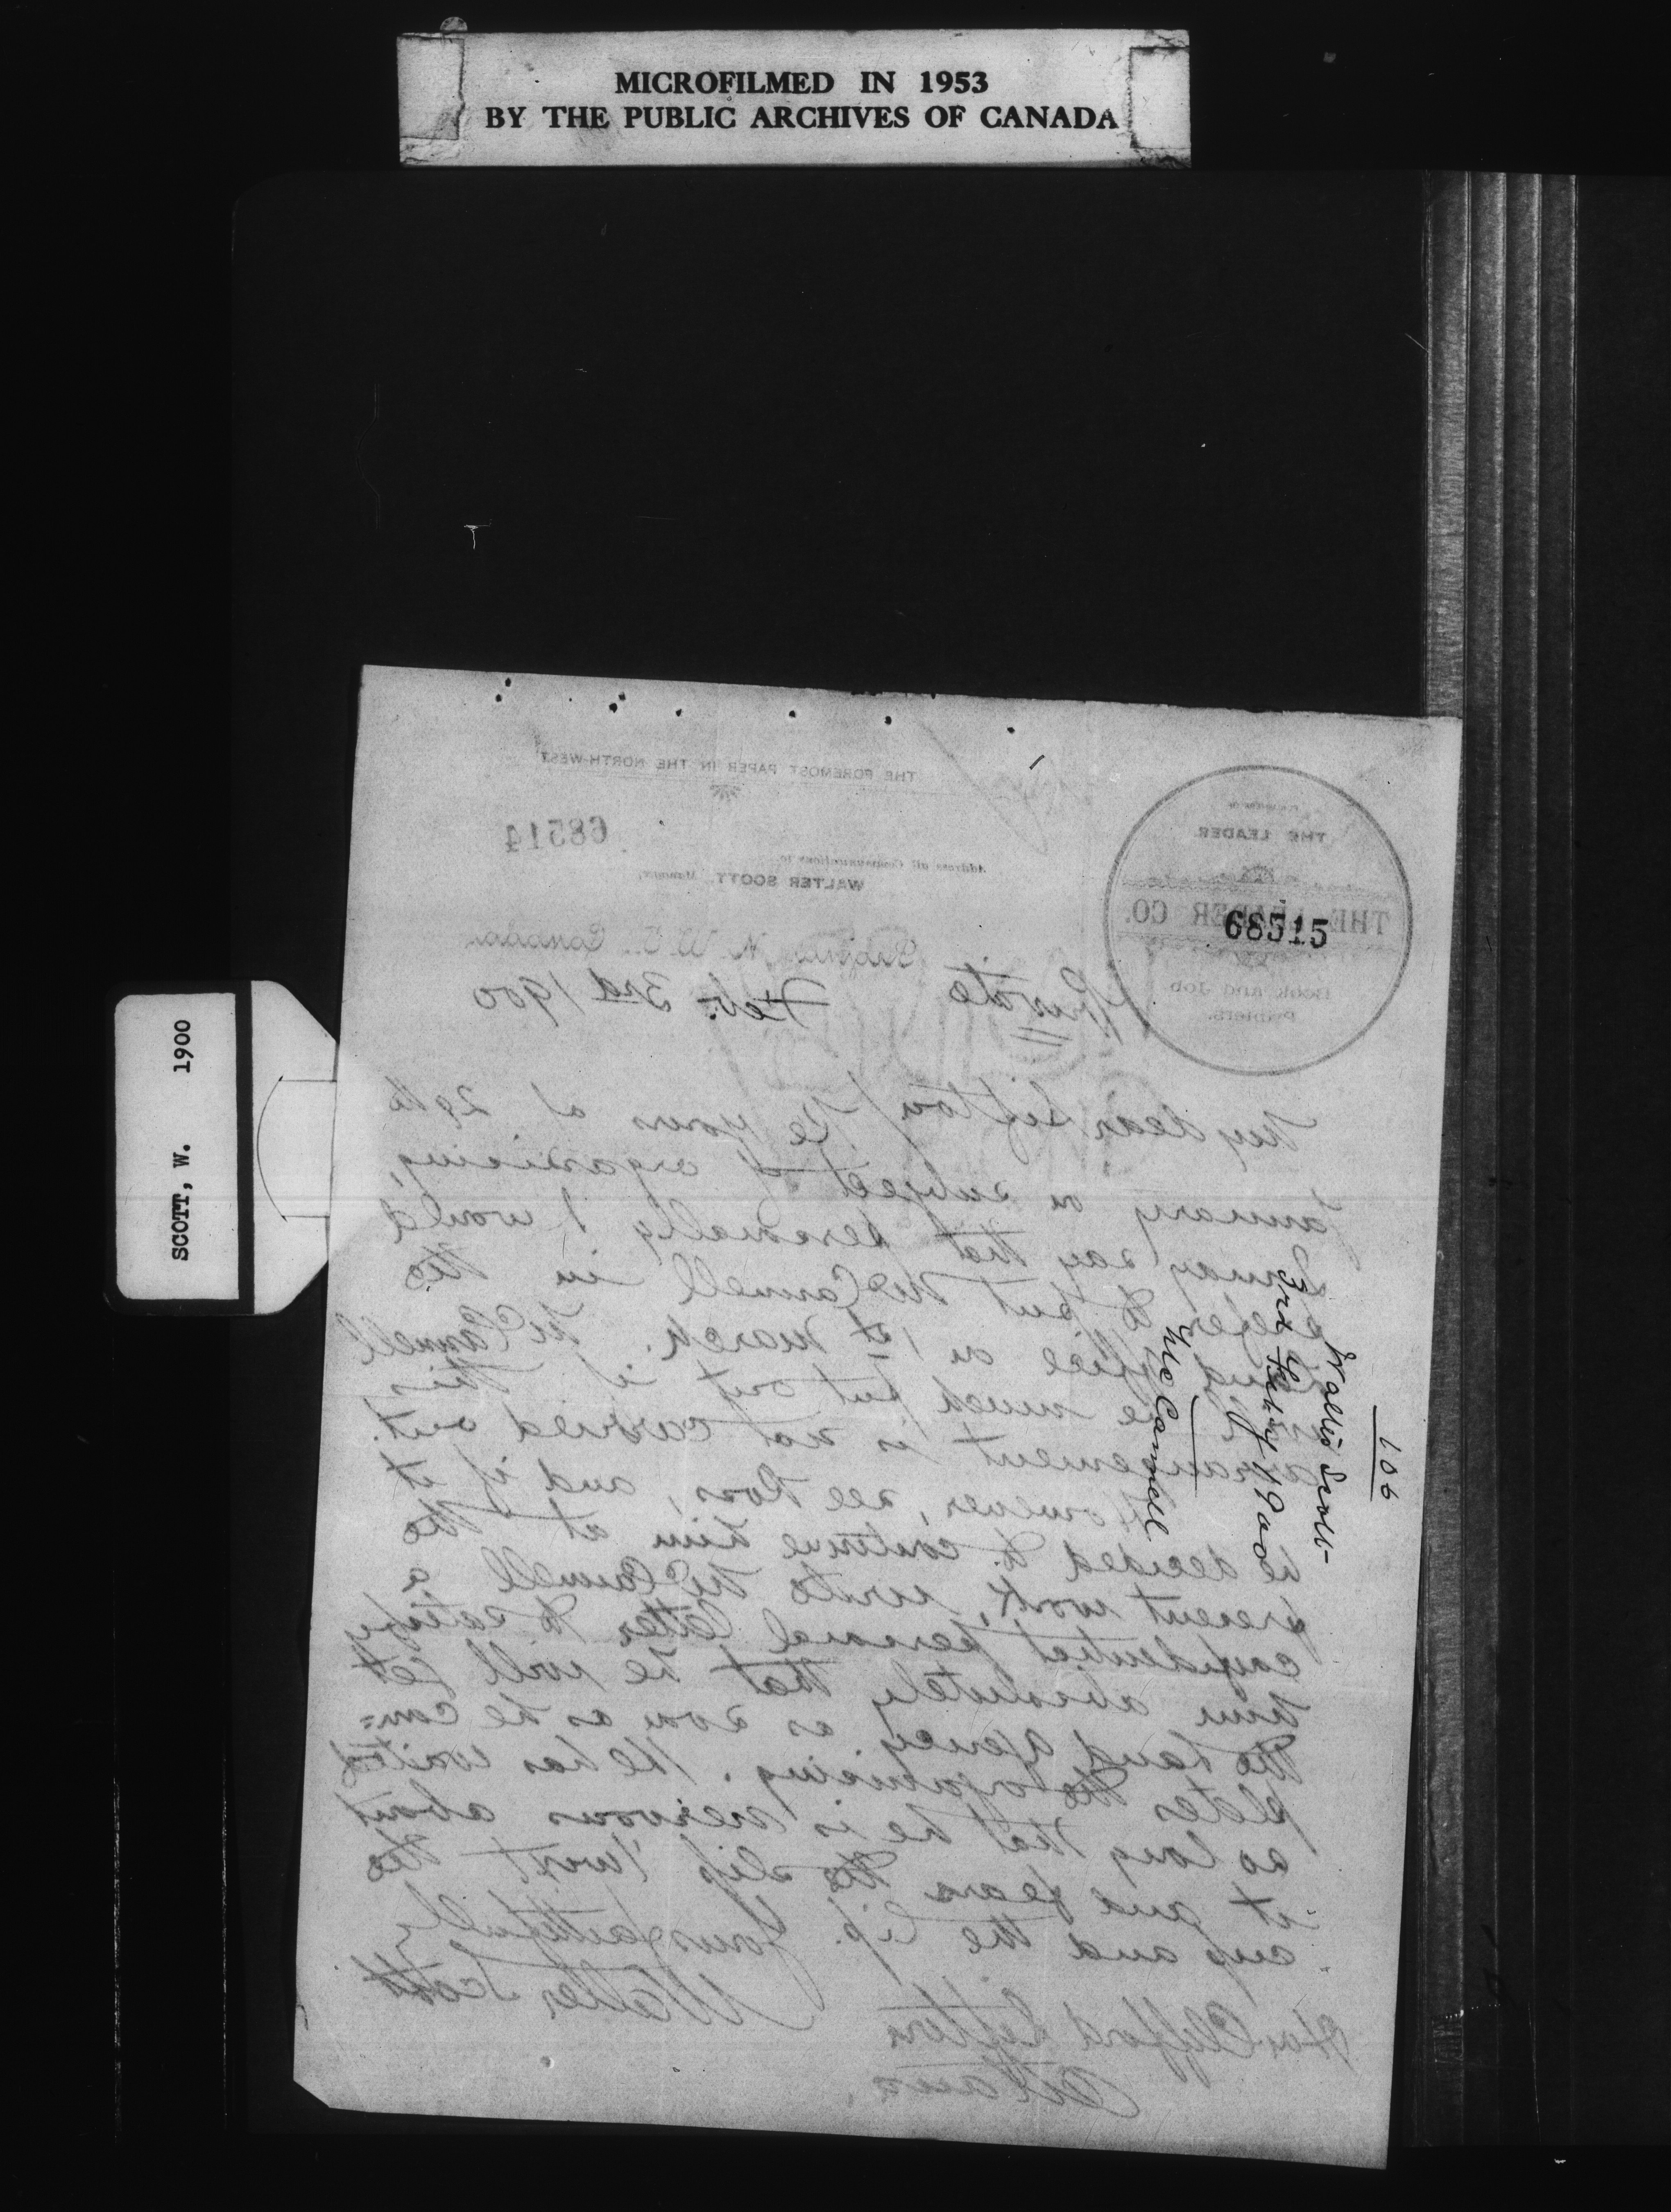 MICROFILMED IN 1953
BY THE PUBLIC ARCHIVES OF CANADA
SCOTT, W. 1900
THE FOREMOST PAPER IN THE NORTH-WEST
68514
Address all Communications to
WALTER SCOTT, Manager,
THE LEADER
THE LEADER CO.
68515
Book and Job
Printers.
Regina, N. W. T. Canada
Private Feb. 3rd 1900
My dear Sifton/
Re yours of 29th
January on subject of organizing,
I may say that personally I would
prefer to put McCannell in the
land office on 1st March. McCannell
will be much put out if this
arrangement is not carried out.
However, see Ross, and if it
be decided to continue him at the
present work, write McCannell a
confidential personal letter to satisfy
him absolutely that he will get
the Land Agency as soon as he com=
pletes the organizing. He has waited
so long that he is nervous about
it and fears the slip 'twixt the
cup and the lip.
Yours faithfully
Walter Scott
Hon Clifford Sifton
Ottawa.
106
Walter Scott
3rd Feby 1900
McCannell